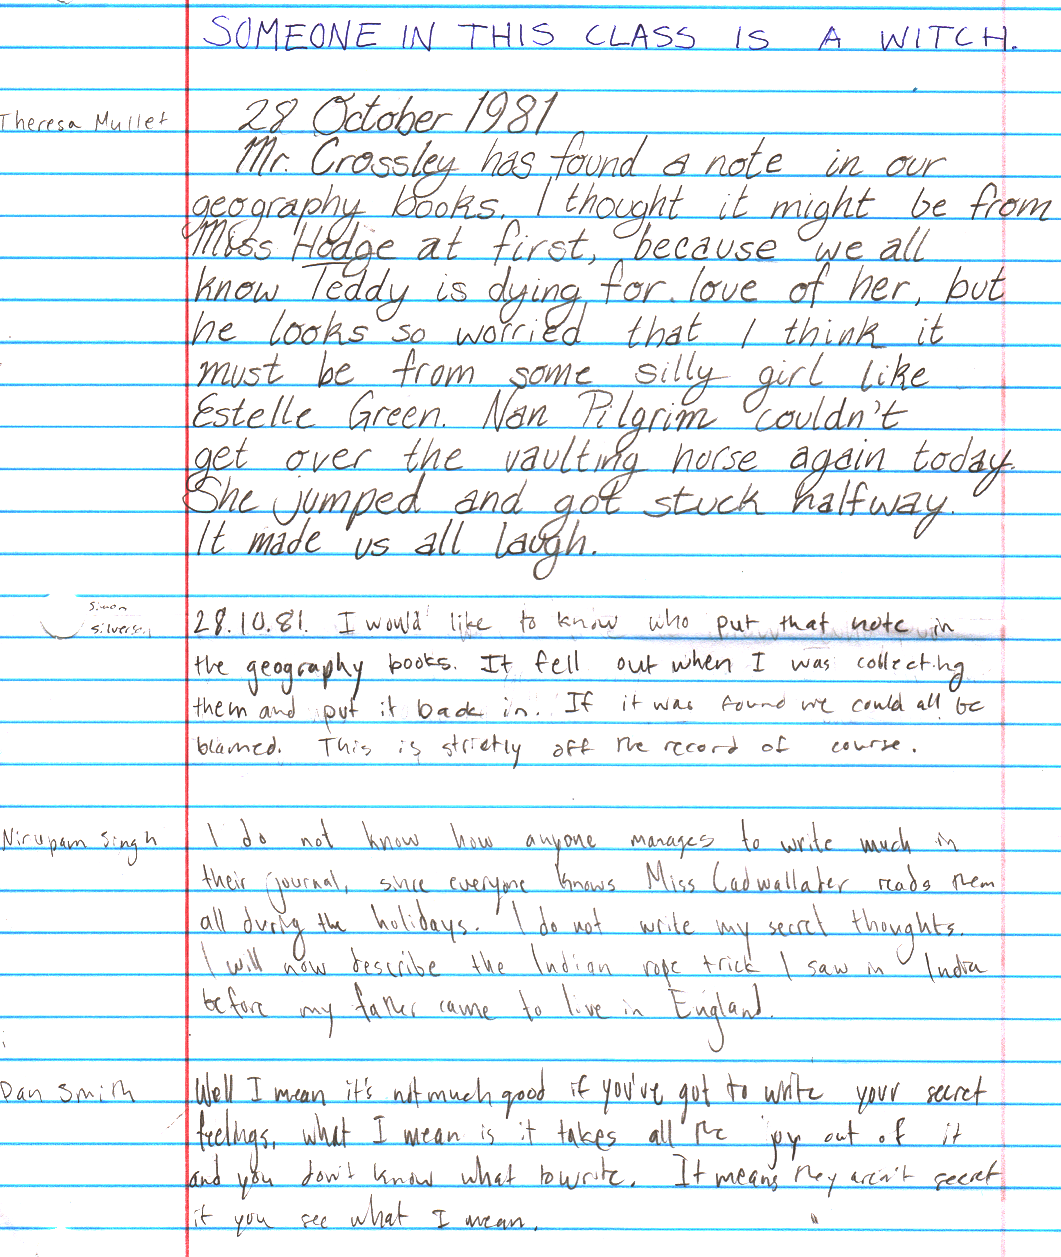 SOMEONE IN THIS CLASS IS A WITCH.
Theresa Mullet
28 October 1981
Mr. Crossley has found a note in our
geography books. I thought it might be from
Miss Hodge at first, because we all
know Teddy is dying for love of her, but
he looks so worried that I think it
must be from some silly girl like
Estelle Green. Nan Pilgrim couldn't
get over the vaulting horse again today.
She jumped and got stuck halfway.
It made us all laugh.
Simon
Silverson
28.10.81. I would like to know who put that note in
the geography books. It fell out when I was collecting
them and put it back in. If it was found we could all be
blamed. This is strictly off the record of course.
Nirupam Singh
I do not know how anyone manages to write much in
their journal, since everyone knows Miss Cadwallater reads them
all during the holidays. I do not write my secret thoughts.
I will now describe the Indian rope trick I saw in India
before my father came to live in England.
Dan Smith
Well I mean it's not much good if you've got to write your secret
feelings, what I mean is it takes all the joy out of it
and you don't know what to write. It means they aren't secret
if you see what I mean.